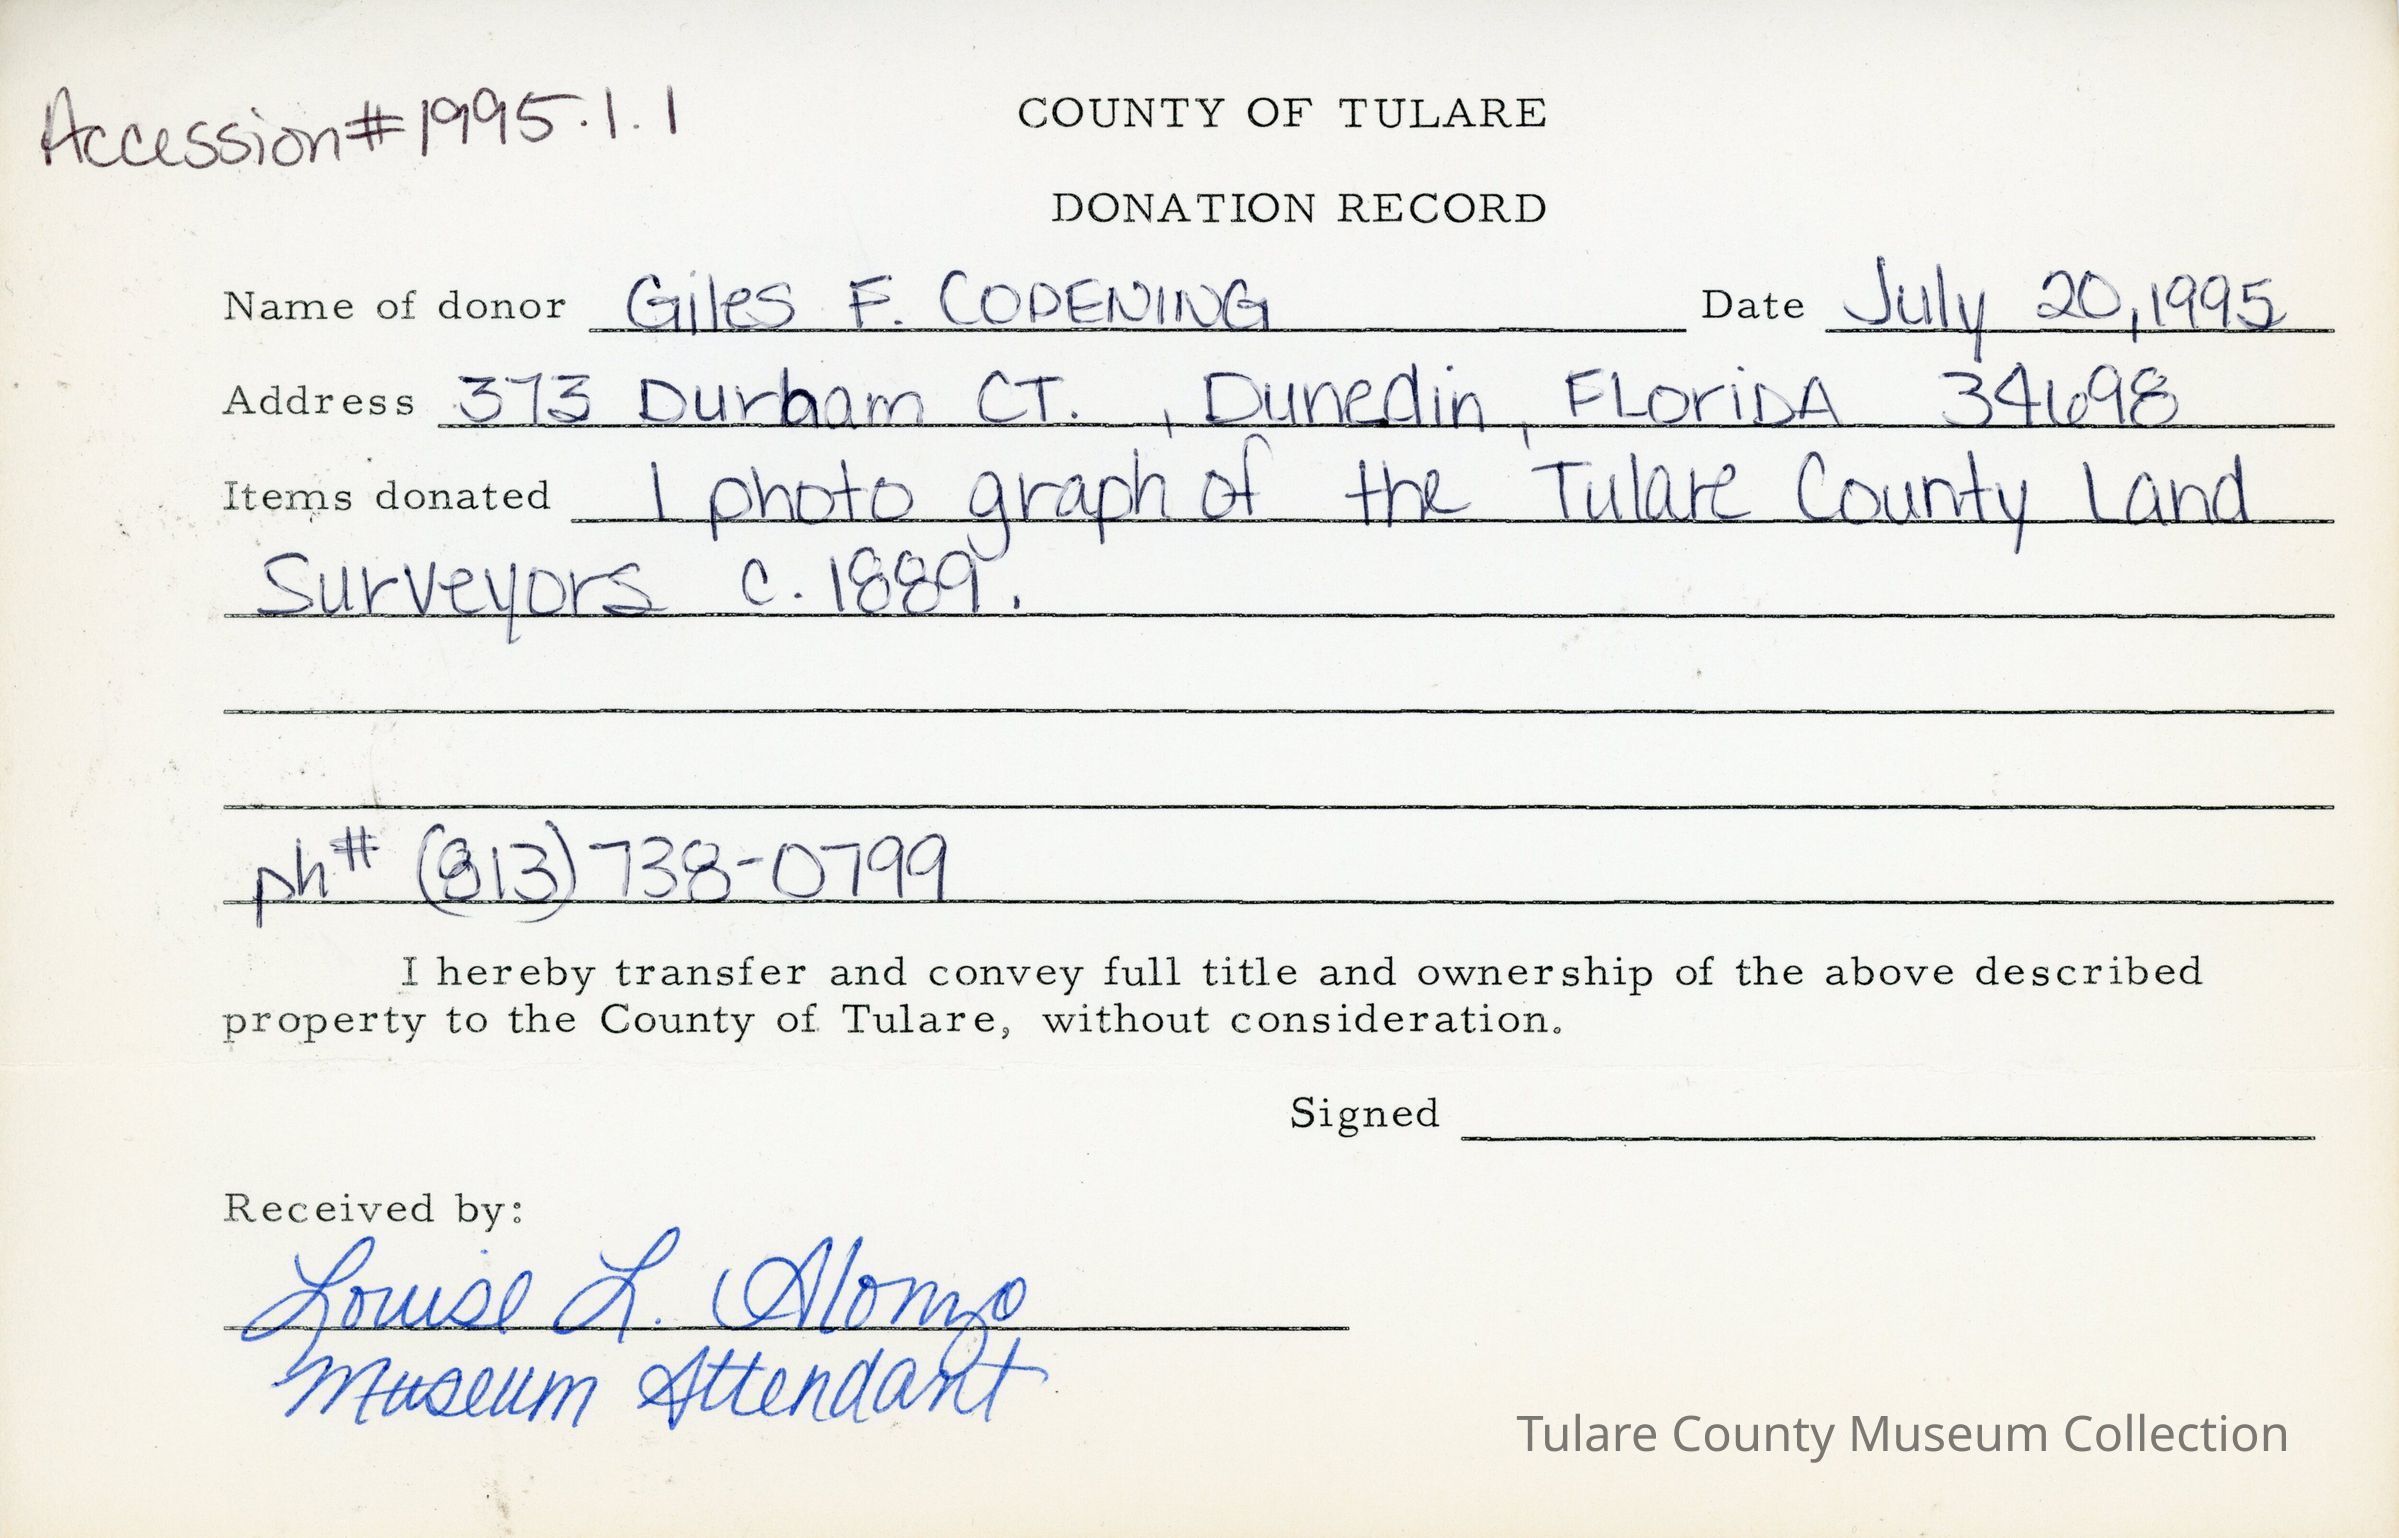 Accession # 1995.1.1
COUNTY OF TULARE
DONATION RECORD
Name of donor Giles F. COPENING Date July 20, 1995
Address 373 Durham CT. , Dunedin, FLoriDA 34698
Items donated 1 photo graph of the Tulare County Land
Surveyors c. 1889.
ph# (813) 738-0799
I hereby transfer and convey full title and ownership of the above described
property to the County of Tulare, without consideration.
Signed
Received by:
Louise L. Alonzo
Museum Attendant
Tulare County Museum Collection